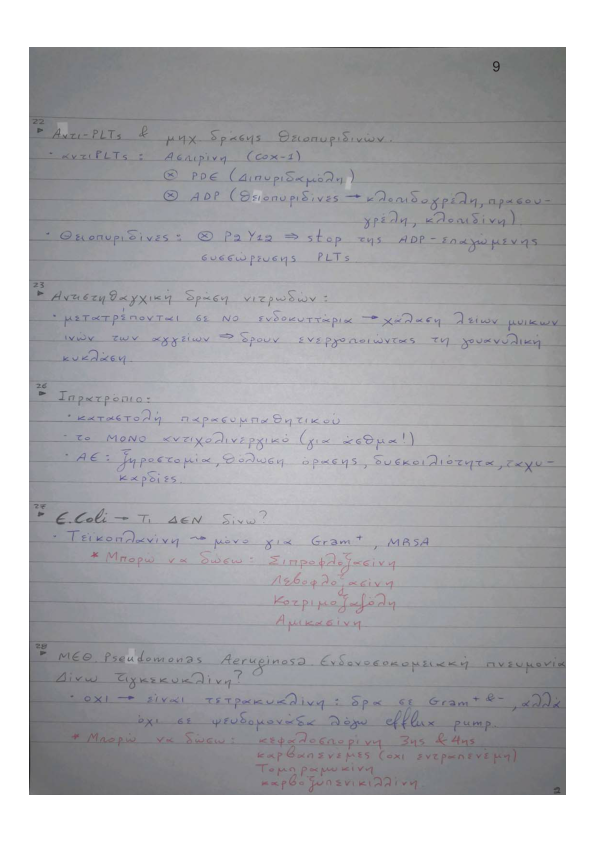 9
22
▶ Αντι-PLTs & μηχ δράσης Θειοπυριδινων.
· αντιPLTs : Ασπιρίνη (COX-1)
⊗ PDE (Διπυριδαμόλη)
⊗ ADP (Θειοπυριδίνες → κλοπιδογρέλη, πρασου-
γρέλη, κλοπιδίνη)
· Θειοπυριδίνες : ⊗ P2Y12 ⇒ stop της ADP-επαγώμενης
συσσώρευσης PLTs
23
▶ Αντιστηθαγχική δράση νιτρωδών :
· μετατρέπονται σε NO ενδοκυττάρια → χάλαση λείων μυικων
ινών των αγγείων ⇒ δρουν ενεργοποιωντας τη γουανυλική
κυκλάση.
26
▶ Ιπρατρόπιο :
· καταστολή παρασυμπαθητικού
· το ΜΟΝΟ αντιχολινεργικό (για άσθμα!)
· ΑΕ : ξηροστομία, θόλωση όρασης, δυσκοιλιότητα, ταχυ-
καρδίες.
27
▶ E.Coli → Τι ΔΕΝ δίνω?
· Τεικοπλανίνη → μόνο για Gram+, MRSA
* Μπορώ να δώσω : Σιπροφλοξασίνη
Λεβοφλοξασίνη
Κοτριμοξαζόλη
Αμικασίνη
28
▶ ΜΕΘ Pseudomonas Aeruginosa Ενδονοσοκομειακή πνευμονία
Δίνω τιγκεκυκλίνη?
· οχι → είναι τετρακυκλίνη : δρα σε Gram+ & -, αλλά
όχι σε ψευδομονάδα λόγω efflux pump.
* Μπορώ να δώσω : κεφαλοσπορίνη 3ης & 4ης
καρβαπενέμες (οχι ενταπενέμη)
Τομπραμυκίνη
καρβοξυπενικιλλίνη
2